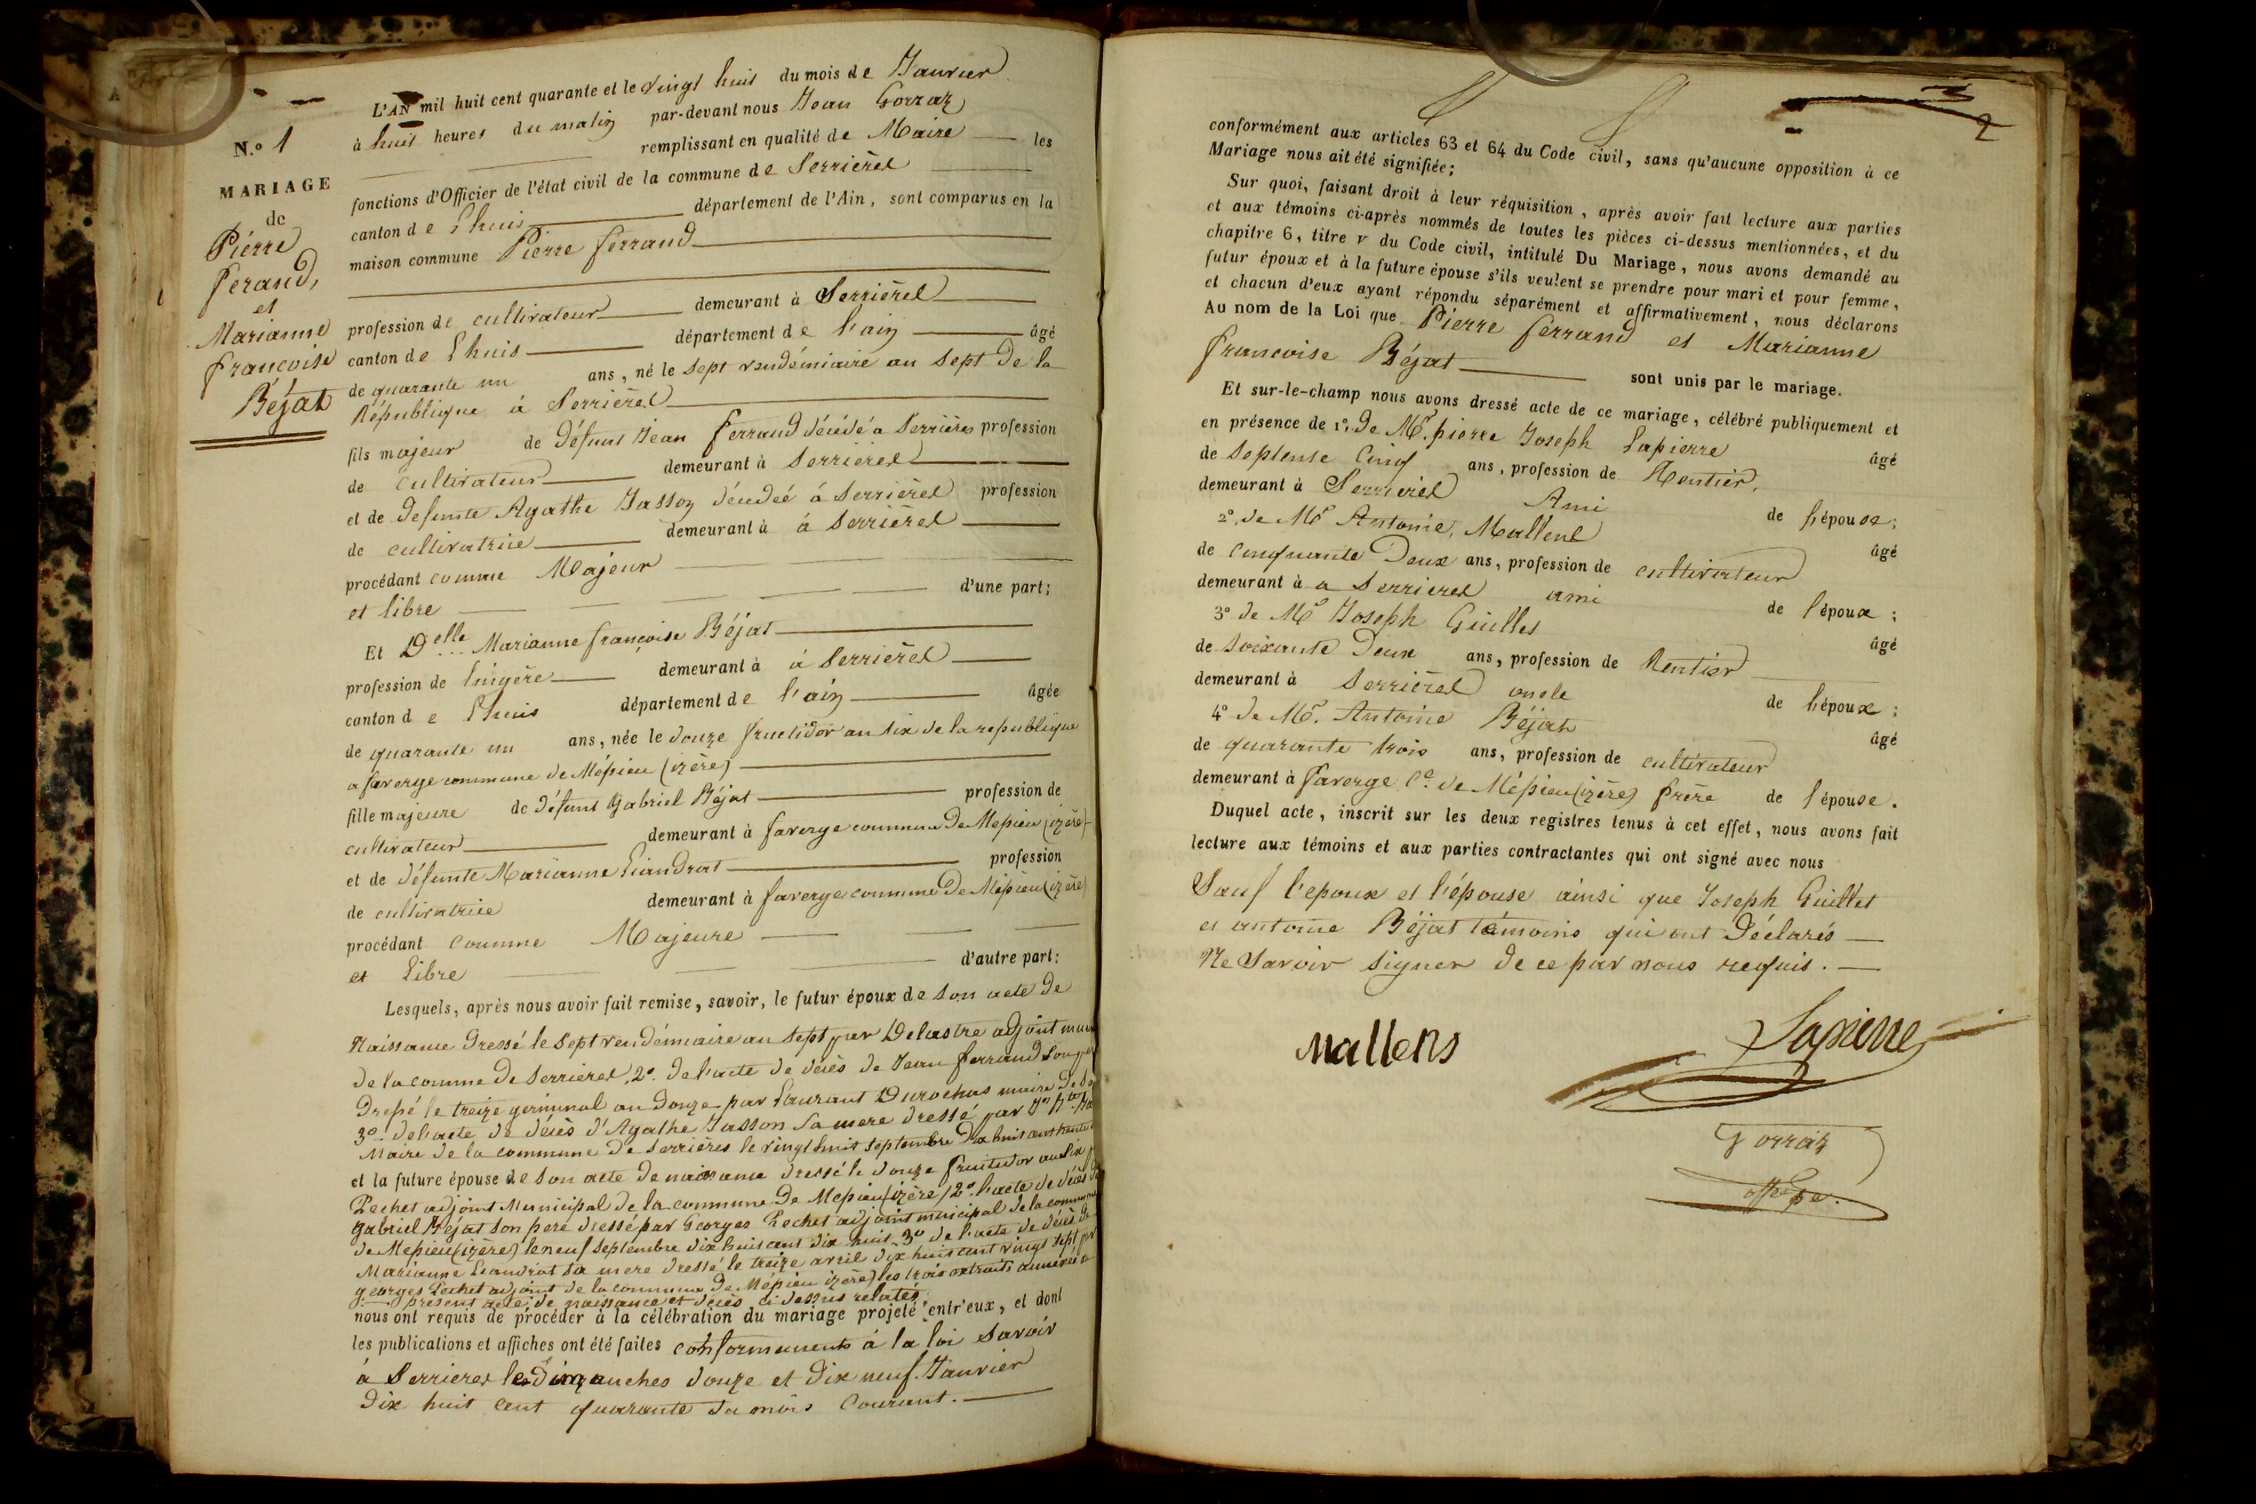 N.o 1
MARIAGE
de
Pierre
ferand,
et
Marianne
françoise
Béjat
L'AN mil huit cent quarante et le vingt huit du mois de Janvier
à huit heures du matin par-devant nous Jean Gorraz
remplissant en qualité de Maire les
fonctions d'Officier de l'état civil de la commune de Serrières
canton de Lhuis département de l'Ain, sont comparus en la
maison commune Pierre ferrand
profession de cultivateur demeurant à Serrières
canton de Lhuis département de l'ain âgé
de quarante un ans, né le sept vendémiaire an sept de la
République à Serrières
fils majeur de défunt Jean ferrand décédé a Serrières profession
de cultivateur demeurant à Serrières
et de defunte Agathe Jasson décedeé á Serrières profession
de cultivatrice demeurant à á Serrières
procédant comme Majeur
et libre d'une part;
Et Delle Marianne françoise Béjat
profession de lingère demeurant à á Serrières
canton de Lhuis département de l'ain âgée
de quarante un ans, née le douze fructidor an six de la republique
a faverge commune de Mépieu (izère)
fille majeure de défunt Gabriel Béjat profession de
cultivateur demeurant à faverge commune de Mepieu (izère)
et de défunte Marianne Liandrat profession
de cultivatrice demeurant à faverge commune de Mépieu (izère)
procédant comme Majeure
et Libre d'autre part:
Lesquels, après nous avoir fait remise, savoir, le futur époux de son acte de
Naissance dressé le sept vendémiaire an sept par Delastre adjoint
de la comune de Serrieres, 2o. de l'acte de décès de Jean ferrand son
Dressé le treize germinal an douze par Laurant Durochas maire de
3o. de l'acte de décès d'Agathe Jasson sa mere dressé par
Maire de la commune de Serrières le vingt huit septembre dix huit cent
et la future épouse de son acte de naissance dressé le douze fructidor an six
Pechet adjoint Municipal de la commune de Mepieu (izère) 2o. l'acte de décès
gabriel Béjat son pere dressé par Georges Pechet adjoint municipal de la commune
de Mepieu (izère) le neuf septembre dix huit cent dix huit 3o de l'acte de décès de
Marianne Liandrat sa mere dressé le treize avril dix huit cent vingt sept par
georges Pechet adjoint de la commune de Mépieu izère) les trois extraits annéxés a
présent acte de naissance et décès ci dessus relatés
nous ont requis de procéder à la célébration du mariage projeté entr'eux, et dont
les publications et affiches ont été faites conformements à la loi savoir
á Serrieres les Dimanches douze et dix neuf Janvier
dix huit cent quarante du mois Courant.
2
conformément aux articles 63 et 64 du Code civil, sans qu'aucune opposition à ce
Mariage nous ait été signifiée;
Sur quoi, faisant droit à leur réquisition, après avoir fait lecture aux parties
et aux témoins ci-après nommés de toutes les pièces ci-dessus mentionnées, et du
chapitre 6, titre v du Code civil, intitulé Du Mariage, nous avons demandé au
futur époux et à la future épouse s'ils veulent se prendre pour mari et pour femme,
et chacun d'eux ayant répondu séparément et affirmativement, nous déclarons
Au nom de la Loi que Pierre ferrand et Marianne
françoise Béjat sont unis par le mariage.
Et sur-le-champ nous avons dressé acte de ce mariage, célébré publiquement et
en présence de 1o. de Mr. pierre Joseph Lapierre âgé
de septente Cinq ans, profession de Rentier,
demeurant à Serrieres Ami de l'épouse;
2o. de Mr Antoine, Mallens âgé
de cinquante Deux ans, profession de cultivateur
demeurant à a Serrieres ami de l'époux;
3o de Mr Joseph Guillet âgé
de soixante Deux ans, profession de Rentier
demeurant à Serrières oncle de l'époux;
4o de Mr. Antoine Béjat âgé
de quarante trois ans, profession de cultivateur
demeurant à faverge Ce. de Mépieu (izère) frère de l'épouse.
Duquel acte, inscrit sur les deux registres tenus à cet effet, nous avons fait
lecture aux témoins et aux parties contractantes qui ont signé avec nous
Sauf l'epoux et l'épouse ainsi que Joseph Guillet
et antoine Béjat témoins qui ont Déclarés
Ne savoir signer de ce par nous requis.
Mallens
Lapierre
Gorraz